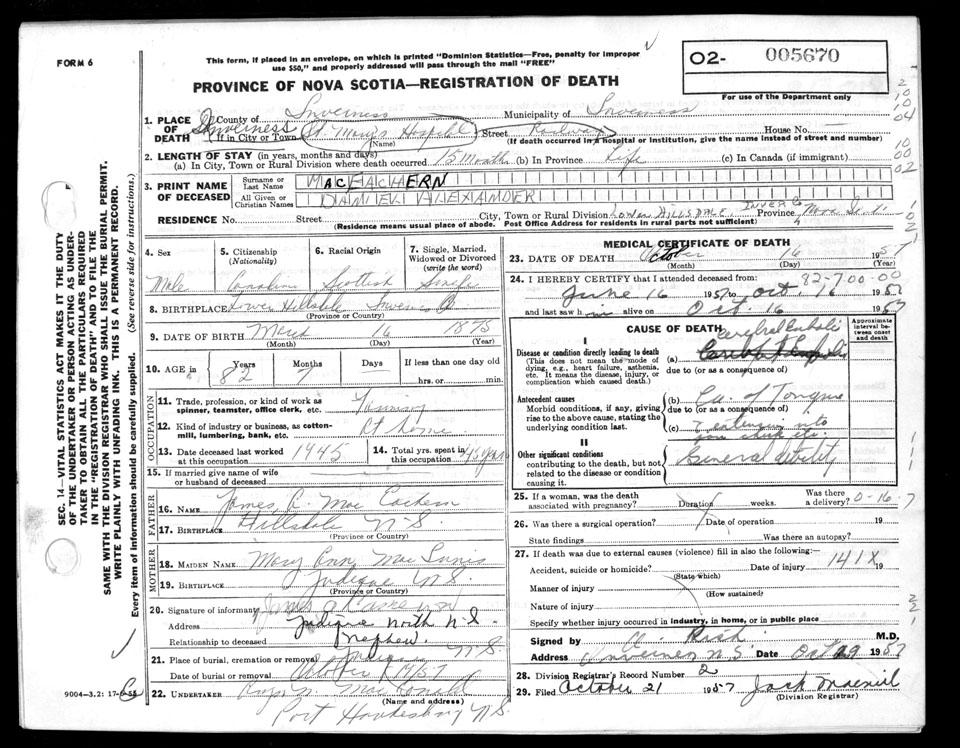 FORM 6
This form, if placed in an envelope, on which is printed "Dominion Statistics—Free, penalty for improper
use $50," and properly addressed will pass through the mail "FREE"
O2- 005670
For use of the Department only
PROVINCE OF NOVA SCOTIA—REGISTRATION OF DEATH
1. PLACE OF DEATH County of Inverness Municipality of Inverness
If in City or Town Inverness St. Mary's Hospital (Name) Street Railway House No. —
(If death occurred in a hospital or institution, give the name instead of street and number)
2. LENGTH OF STAY (in years, months and days)
(a) In City, Town or Rural Division where death occurred 15 Months (b) In Province Life (c) In Canada (if immigrant)
3. PRINT NAME OF DECEASED
Surname or Last Name MACEACHERN
All Given or Christian Names DANIEL ALEXANDER
RESIDENCE No. Street City, Town or Rural Division Lower Hillsdale Inver Co Province
(Residence means usual place of abode. Post Office Address for residents in rural parts not sufficient)
4. Sex
Male
5. Citizenship (Nationality)
Canadian
6. Racial Origin
Scottish
7. Single, Married, Widowed or Divorced (write the word)
Single
8. BIRTHPLACE Lower Hillsdale Inverness Co
(Province or Country)
9. DATE OF BIRTH March 16 1875
(Month) (Day) (Year)
10. AGE in Years Months Days If less than one day old
82 7 hrs. or min.
OCCUPATION
11. Trade, profession, or kind of work as
spinner, teamster, office clerk, etc. Farming
12. Kind of industry or business, as cotton-
mill, lumbering, bank, etc. At Home
13. Date deceased last worked at this occupation 1945
14. Total yrs. spent in this occupation 45 years
15. If married give name of wife
or husband of deceased
FATHER
16. NAME James C. Mac Eachern
17. BIRTHPLACE Hillsdale N-S.
(Province or Country)
MOTHER
18. MAIDEN NAME Mary Ann Mac Innis
19. BIRTHPLACE Judique N.S.
(Province or Country)
20. Signature of informant James A
Address Judique North N.S.
Relationship to deceased Nephew.
21. Place of burial, cremation or removal Judique N.S.
Date of burial or removal October 1957
22. UNDERTAKER Mac Donald
(Name and address)
Port Hawkesbury N.S.
9004-3.2: 17-6-55
SEC. 14—VITAL STATISTICS ACT MAKES IT THE DUTY
OF THE UNDERTAKER OR PERSON ACTING AS UNDER-
TAKER TO OBTAIN ALL THE PARTICULARS REQUIRED
IN THE "REGISTRATION OF DEATH" AND TO FILE THE
SAME WITH THE DIVISION REGISTRAR WHO SHALL ISSUE THE BURIAL PERMIT.
WRITE PLAINLY WITH UNFADING INK. THIS IS A PERMANENT RECORD.
Every item of information should be carefully supplied. (See reverse side for instructions.)
MEDICAL CERTIFICATE OF DEATH
23. DATE OF DEATH October 16 1957
(Month) (Day) (Year)
24. I HEREBY CERTIFY that I attended deceased from: 82-700-00
June 16 1957 to Oct. 16 1957
and last saw him alive on Oct. 16 1957
CAUSE OF DEATH
Approximate interval between onset and death
I
Disease or condition directly leading to death
(This does not mean the mode of
dying, e.g., heart failure, asthenia,
etc. It means the disease, injury, or
complication which caused death.)
(a) Cerebral Emboli
due to (or as a consequence of)
Antecedent causes
Morbid conditions, if any, giving
rise to the above cause, stating the
underlying condition last.
(b) Ca. of Tongue
due to (or as a consequence of)
(c) extension into
jaw cheek etc.
II
Other significant conditions
contributing to the death, but not
related to the disease or condition
causing it.
General debility
25. If a woman, was the death associated with pregnancy? Duration weeks. Was there a delivery? 0-16-7
26. Was there a surgical operation? Date of operation 19
State findings Was there an autopsy?
27. If death was due to external causes (violence) fill in also the following:—
Accident, suicide or homicide? Date of injury 141X 19
(State which)
Manner of injury
(How sustained)
Nature of injury
Specify whether injury occurred in industry, in home, or in public place
Signed by M.D.
Address Inverness N.S. Date Oct 19 1957
28. Division Registrar's Record Number 2
29. Filed October 21 1957 Jack Macneil
(Division Registrar)